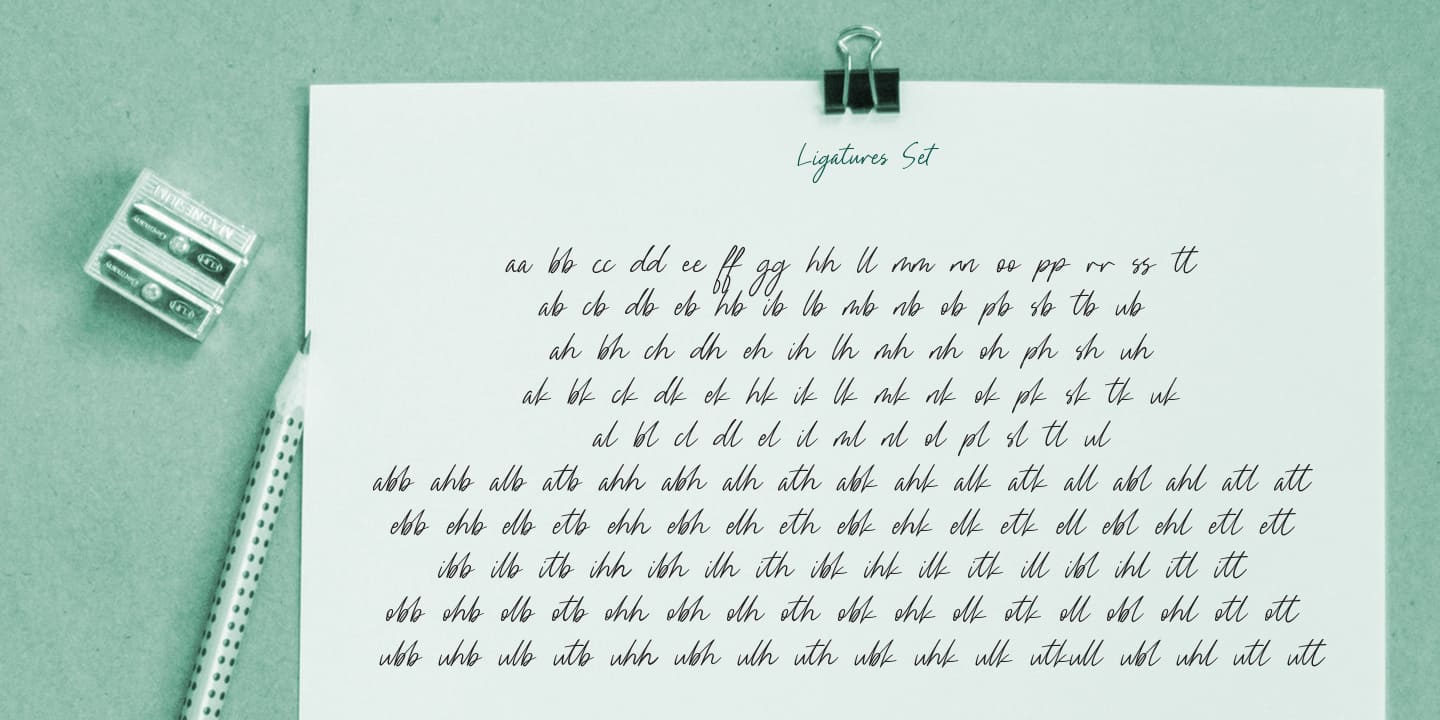 Ligatures Set
MAGNESIUM
Germany
Germany
aa bb cc dd ee ff gg hh ll mm nn oo pp rr ss tt
ab cb db eb hb ib lb mb nb ob pb sb tb ub
ah bh ch dh eh ih lh mh nh oh ph sh uh
ak bk ck dk ek hk ik lk mk nk ok pk sk tk uk
al bl cl dl el il ml nl ol pl sl tl ul
abb ahb alb atb ahh abh alh ath abk ahk alk atk all abl ahl atl att
ebb ehb elb etb ehh ebh elh eth ebk ehk elk etk ell ebl ehl etl ett
ibb ilb itb ihh ibh ilh ith ibk ihk ilk itk ill ibl ihl itl itt
obb ohb olb otb ohh obh olh oth obk ohk olk otk oll obl ohl otl ott
ubb uhb ulb utb uhh ubh ulh uth ubk uhk ulk utkull ubl uhl utl utt